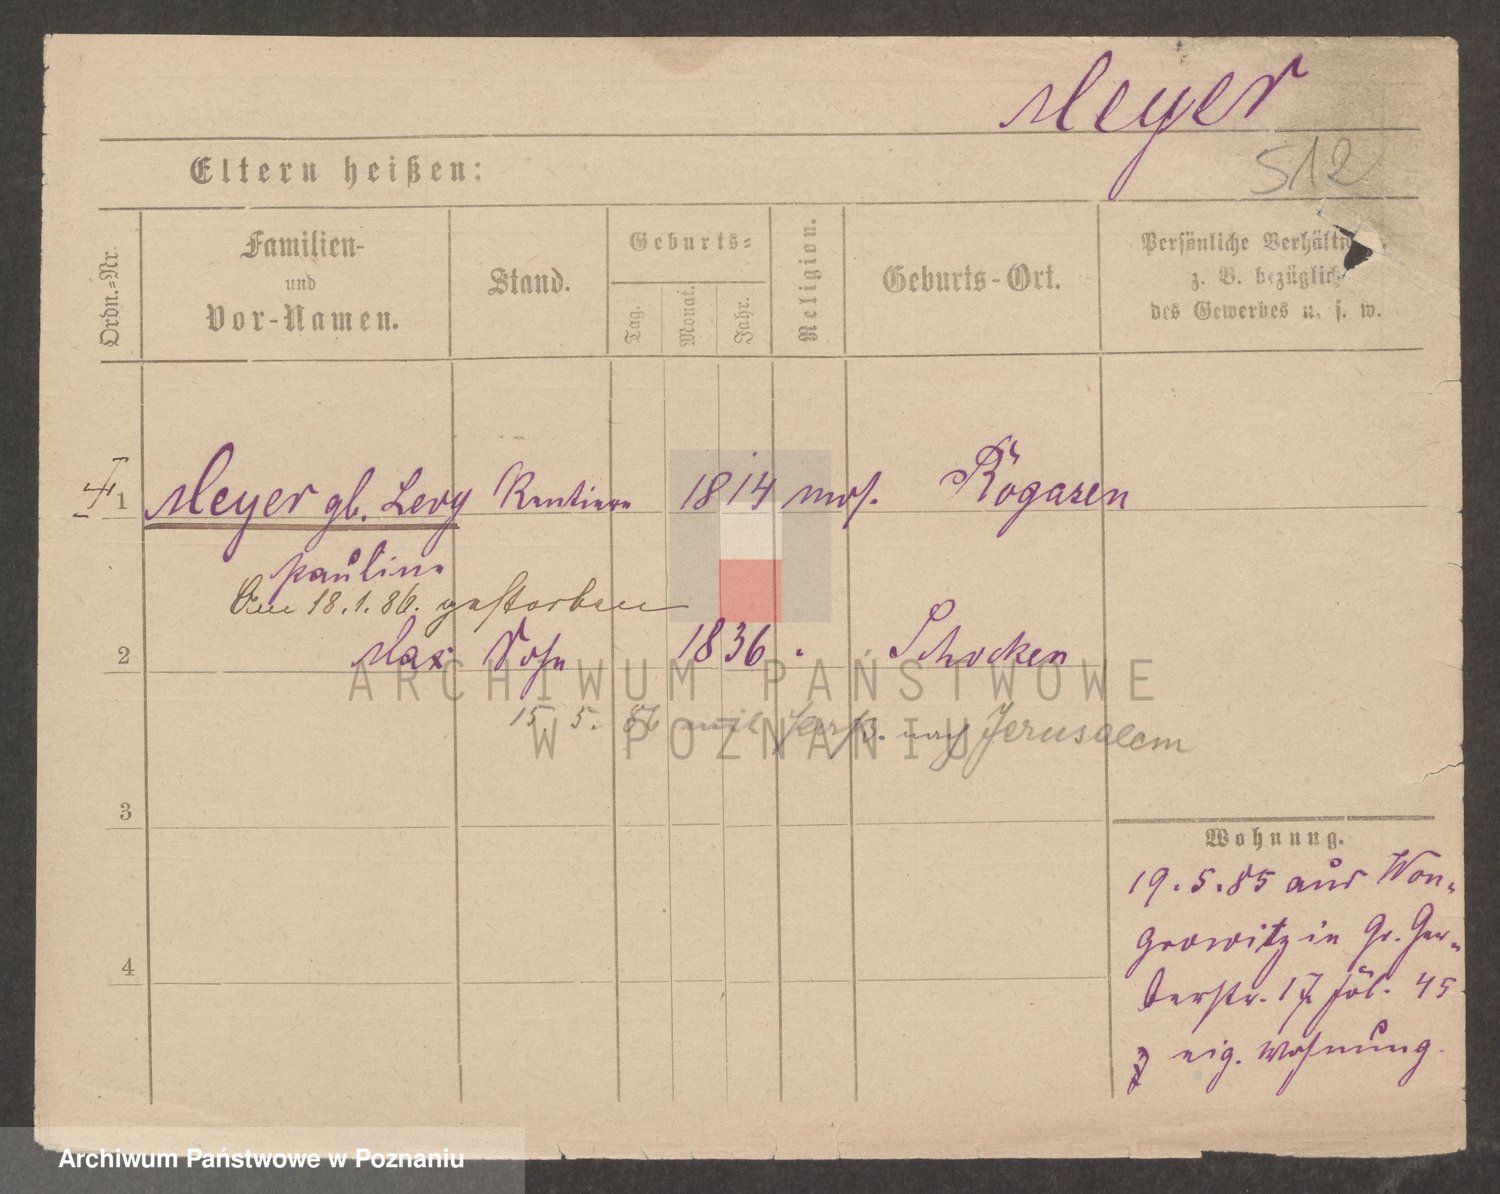 Meyer
512
Eltern heißen:
Ordn.=Nr.
Familien-
und
Vor-Namen.
Stand.
Geburts=
Tag.
Monat.
Jahr.
Religion.
Geburts-Ort.
Persönliche Verhältn
z. B. bezüglich
des Gewerbes u. s. w.
1 Meyer gb. Levy Rentiere 1814 mos. Rogasen
Pauline
Am 18.1.86. gestorben
2 Max Sohn 1836 Schocken
15 5. 86 mit nach Jerusalem
3
4
Wohnung.
19.5.85 aus Won=
growitz in Gr. Ger=
berstr. 17 45
z eig. Wohnung.
ARCHIWUM PAŃSTWOWE
W POZNANIU
Archiwum Państwowe w Poznaniu